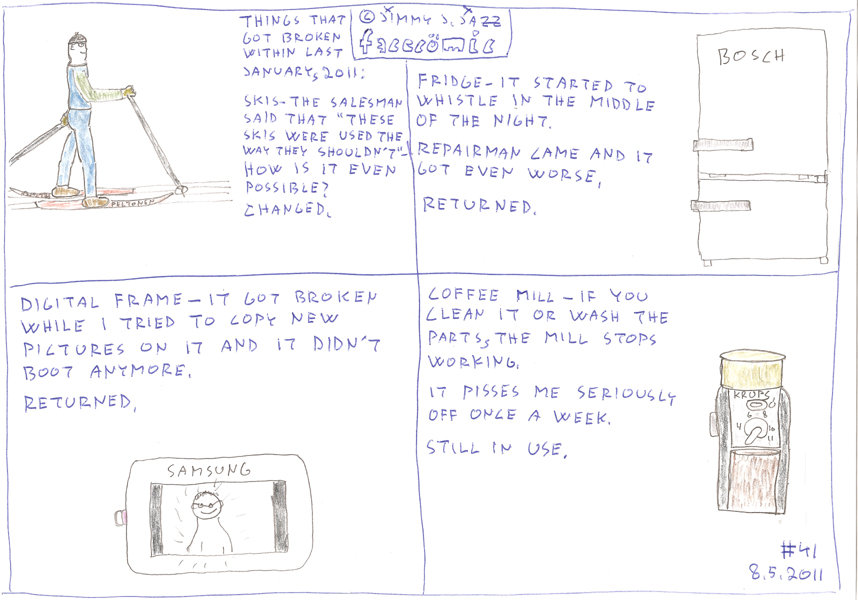 THINGS THAT
GOT BROKEN
WITHIN LAST
JANUARY, 2011:
SKIS - THE SALESMAN
SAID THAT "THESE
SKIS WERE USED THE
WAY THEY SHOULDN'T" -
HOW IS IT EVEN
POSSIBLE?
CHANGED.
PELTONEN
© JIMMY J. JAZZ
faccrömic
FRIDGE - IT STARTED TO
WHISTLE IN THE MIDDLE
OF THE NIGHT.
REPAIRMAN CAME AND IT
GOT EVEN WORSE.
RETURNED.
BOSCH
DIGITAL FRAME - IT GOT BROKEN
WHILE I TRIED TO COPY NEW
PICTURES ON IT AND IT DIDN'T
BOOT ANYMORE.
RETURNED.
SAMSUNG
COFFEE MILL - IF YOU
CLEAN IT OR WASH THE
PARTS, THE MILL STOPS
WORKING.
IT PISSES ME SERIOUSLY
OFF ONCE A WEEK.
STILL IN USE.
KRUPS
6 8
4 10
11
#41
8.5.2011